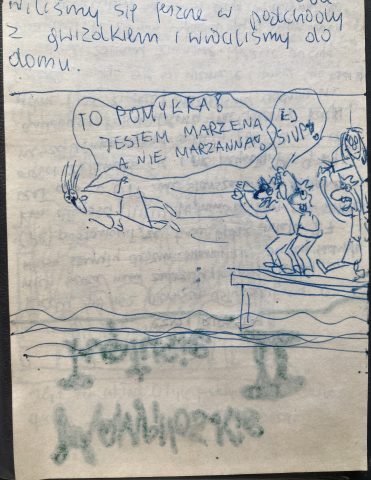 wiliśmy się jeszcze w podchody
z gwizdkiem i wróciliśmy do
domu.
TO POMYŁKA!
JESTEM MARZENA
A NIE MARZANNA!
EJ
SIUP!